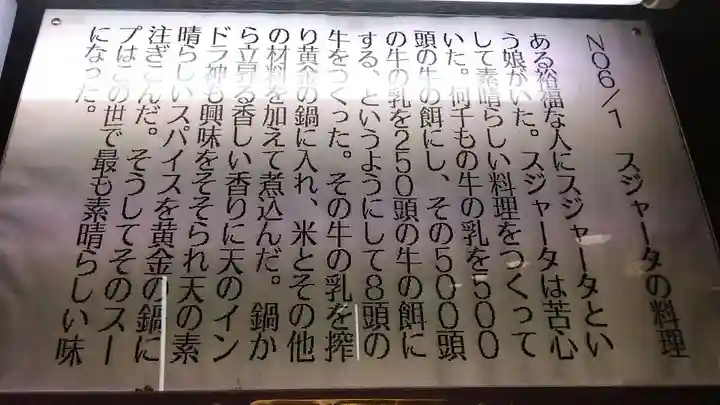 NO6/1 スジャータの料理
ある裕福な人にスジャータとい
う娘がいた。スジャータは苦心
して素晴らしい料理をつくって
いた。何千もの牛の乳を500
頭の牛の餌にし、その500頭
の牛の乳を250頭の牛の餌に
する、というようにして8頭の
牛をつくった。その牛の乳を搾
り黄金の鍋に入れ、米とその他
の材料を加えて煮込んだ。鍋か
ら立昇る香しい香りに天のイン
ドラ神も興味をそそられ天の素
晴らしいスパイスを黄金の鍋に
注ぎこんだ。そうしてそのスー
プはこの世で最も素晴らしい味
になった。